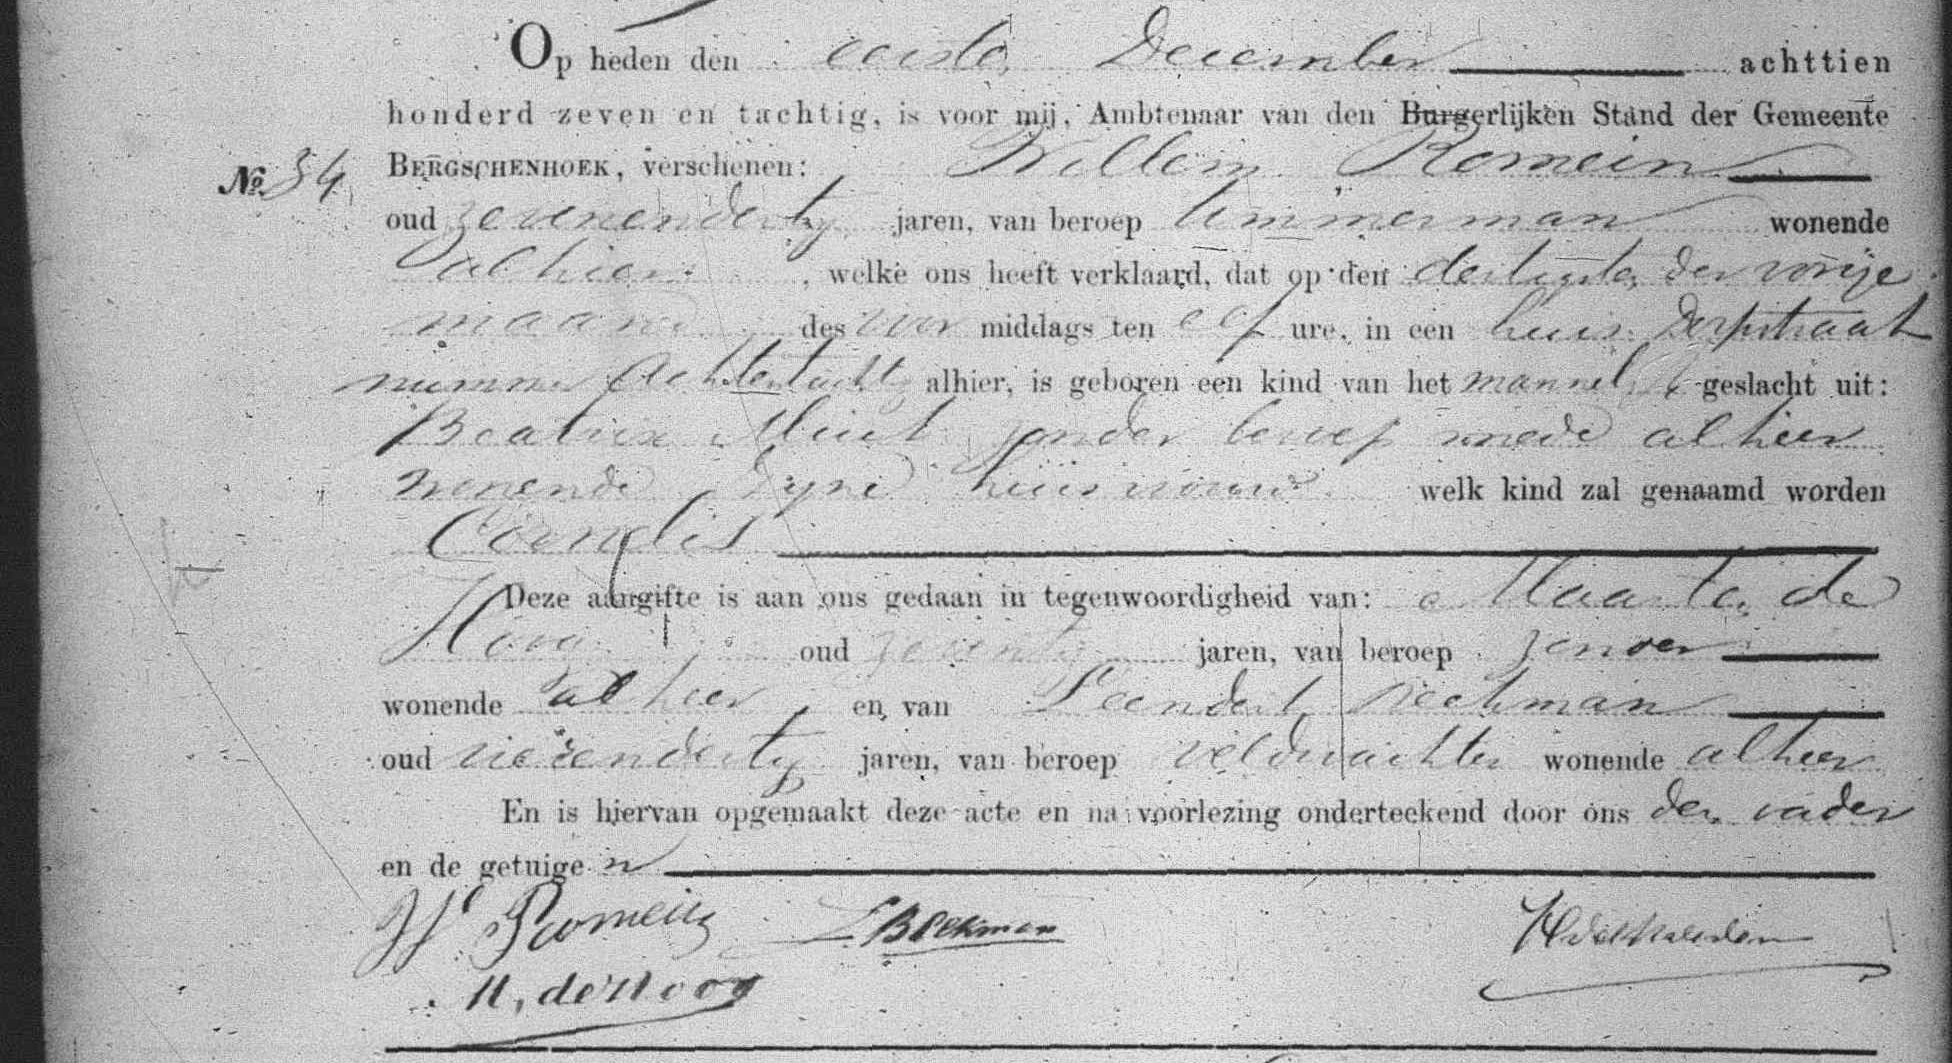 Op heden den eersten December achttien
honderd zeven en tachtig, is voor mij, Ambtenaar van den Burgerlijken Stand der Gemeente
No. 34 BERGSCHENHOEK, verschenen: Willem Romein
oud zevenendertig jaren, van beroep timmerman wonende
alhier, welke ons heeft verklaard, dat op den dertigsten der vorige
maand des voor middags ten elf ure, in een huis Dorpstraat
nummer Achtentachtig alhier, is geboren een kind van het mannelijk geslacht uit:
Beatrix zonder beroep mede alhier
wonende zijne huisvrouw welk kind zal genaamd worden
Cornelis
Deze aangifte is aan ons gedaan in tegenwoordigheid van: Maarten de
Hoog oud zeventig jaren, van beroep zonder
wonende alhier en van Leendert Beekman
oud vierendertig jaren, van beroep veldwachter wonende alhier
En is hiervan opgemaakt deze acte en na voorlezing onderteekend door ons den vader
en de getuigen
W Romein L. Beekman
M, de Hoog